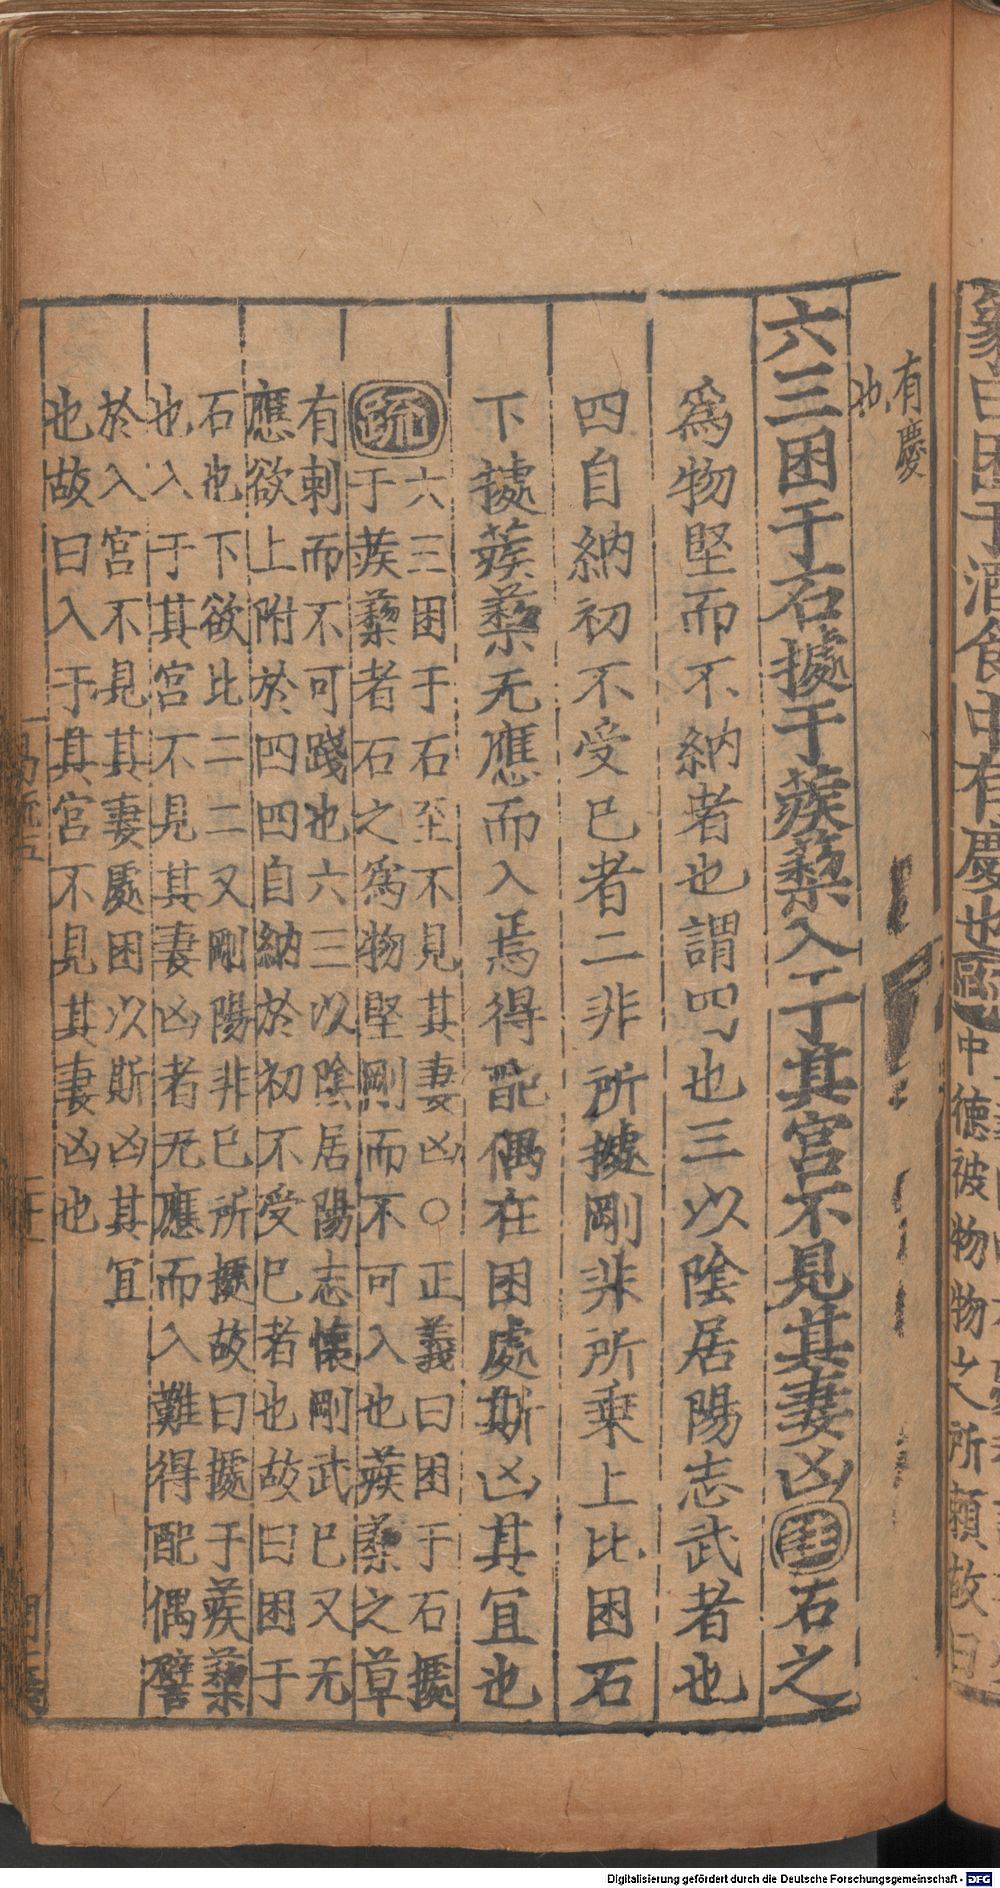 彖曰困于酒食中有慶也疏
中德被物物之所賴故曰
有慶
也
六三困于石據于蒺蔾入于其宮不見其妻凶註石之
為物堅而不納者也謂四也三以陰居陽志武者也
四自納初不受已者二非所據剛非所乗上比困石
下據蒺蔾无應而入焉得配偶在困處斯凶其宜也
疏六三困于石至不見其妻凶○正義曰困于石據
于蒺蔾者石之為物堅剛而不可入也蒺蔾之草
有刺而不可踐也六三以陰居陽志懷剛武已又无
應欲上附於四四自納於初不受已者也故曰困于
石也下欲比二二又剛陽非已所據故曰據于蒺蔾
也入于其宮不見其妻凶者无應而入難得配偶譬
於入宮不見其妻處困以斯凶其宜
也故曰入于其宮不見其妻凶也
Digitalisierung gefördert durch die Deutsche Forschungsgemeinschaft - DFG